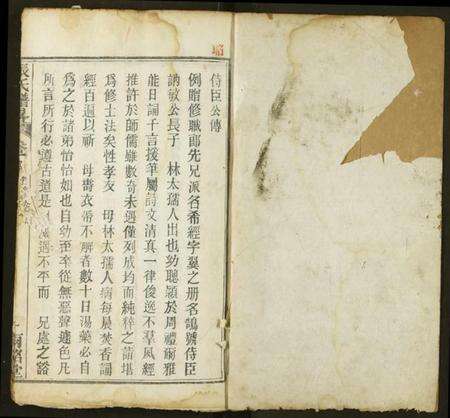 侍臣公傳
例贈修職郎先兄派名希經字翼之册名鵠號侍臣
訥敏公長子 林太孺人出也幼聰穎於周禮爾雅
能日誦千言援筆屬詩文清真一律俊逸不羣風經
推許於師儒雖數奇未遇僅列成均而純粹之詣堪
爲修士法矣性孝友 母林太孺人病每晨焚香誦
經百遍以祈 母壽衣帶不解者數十日湯藥必自
爲之於諸弟怡怡如也自幼至卒從無惡聲遽色凡
所言所行必遵古道是 遇不平而 兄處之谿
張氏譜